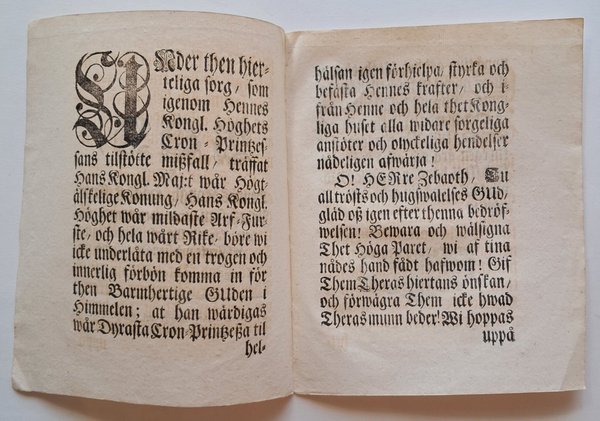 UNder then hier-
teliga sorg, som
igenom Hennes
Kongl. Höghets
Cron-Printzes-
sans tilstötte mißfall, träffat
Hans Kongl. Maj:t wår Högt-
älskelige Konung, Hans Kongl.
Höghet wår mildaste Arf-Fur-
ste, och hela wårt Rike, böre wi
icke underlåta med en trogen och
innerlig förbön komma in för
then Barmhertige GUden i
Himmelen; at han wärdigas
wår Dyrasta Cron-Printzeßa til
hel-
hälsan igen förhielpa, styrka och
befästa Hennes krafter, och i-
från Henne och hela thet Kong-
liga huset alla widare sorgeliga
anstöter och olyckeliga hendelser
nådeligen afwärja!
O! HERre Zebaoth, Tu
all trösts och hugswalelses GUd,
gläd oß igen efter thenna bedröf-
welsen! Bewara och wälsigna
Thet Höga Paret, wi af tina
nådes hand fådt hafwom! Gif
Them Theras hiertans önskan,
och förwägra Them icke hwad
Theras mun beder! Wi hoppas
uppå